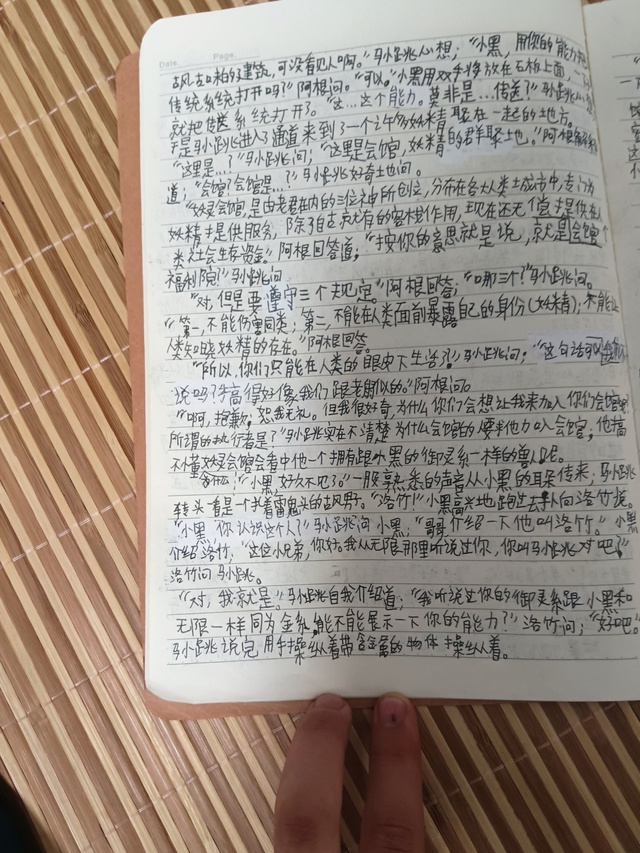 Date. Page.
古风古味的建筑，可没看见人啊。"马小跳心想；"小黑，用你的能力把
传统系统打开吗？"阿根问。"可以。"小黑用双手将放在石板上面，一
就把传送系统打开了。"这…这个能力。莫非是…传送？"马小跳心想
于是马小跳进入了通道来到了一个上午的妖精聚在一起的地方。
"这里是…？"马小跳问；"这里是会馆，妖精的群聚土也。"阿根解释
道；"会馆？会馆是…？"马小跳好奇土也问。
"妖灵会馆是由老君在内的三位神所创立，分布在各大人类土城市中，专门为
妖精提供服务，除了自古就有的客栈作用，现在还无偿提供在
类社会生存资金。"阿根回答道；"按你的意思就是说，就是会馆个
福利院？"马小跳问
"对，但是要遵守三个规定。"阿根回答；"口那三个？"马小跳问。
"第一，不能伤害同类；第二，不能在人类面前暴露自己的身份（妖精）；不能让
人类知晓妖精的存在。"阿根回答
"所以，你们只能在人类的眼皮下生活了？"马小跳问；"这句话可
说吗？搞得好像我们跟老鼠似的。"阿根问。
"啊，抱歉，恕我无礼。但我很好奇，为什么你们会想让我来加入你们会馆里
所谓的执行者是了"马小跳实在不清楚为什么会馆的要半他力口入会馆，他搞
不懂妖灵会馆会看中他一个拥有跟小黑的御灵系一样的兽人呢。
"小黑，好久不见了。"一股熟悉的声音从小黑的耳朵传来，马小跳
转头一看是一个扎着雷鬼头的古风男子。"洛竹！"小黑高兴地跑过去扑向洛竹抱。
"小黑，你认识这个人？"马小跳问小黑；"哥哥介绍一下他叫洛竹。"小黑
介绍洛竹；"这位小兄弟，你好。我从无限那里听说过你，你叫马小跳对吧？"
洛竹问马小跳。
"对，我就是。"马小跳自我介绍道；"我听说过你的御灵系跟小黑和
无限一样同为金系，能不能展示一下你的能力？"洛竹问；"好吧。"
马小跳说完，用手操纵着带含金属的物体操纵着。